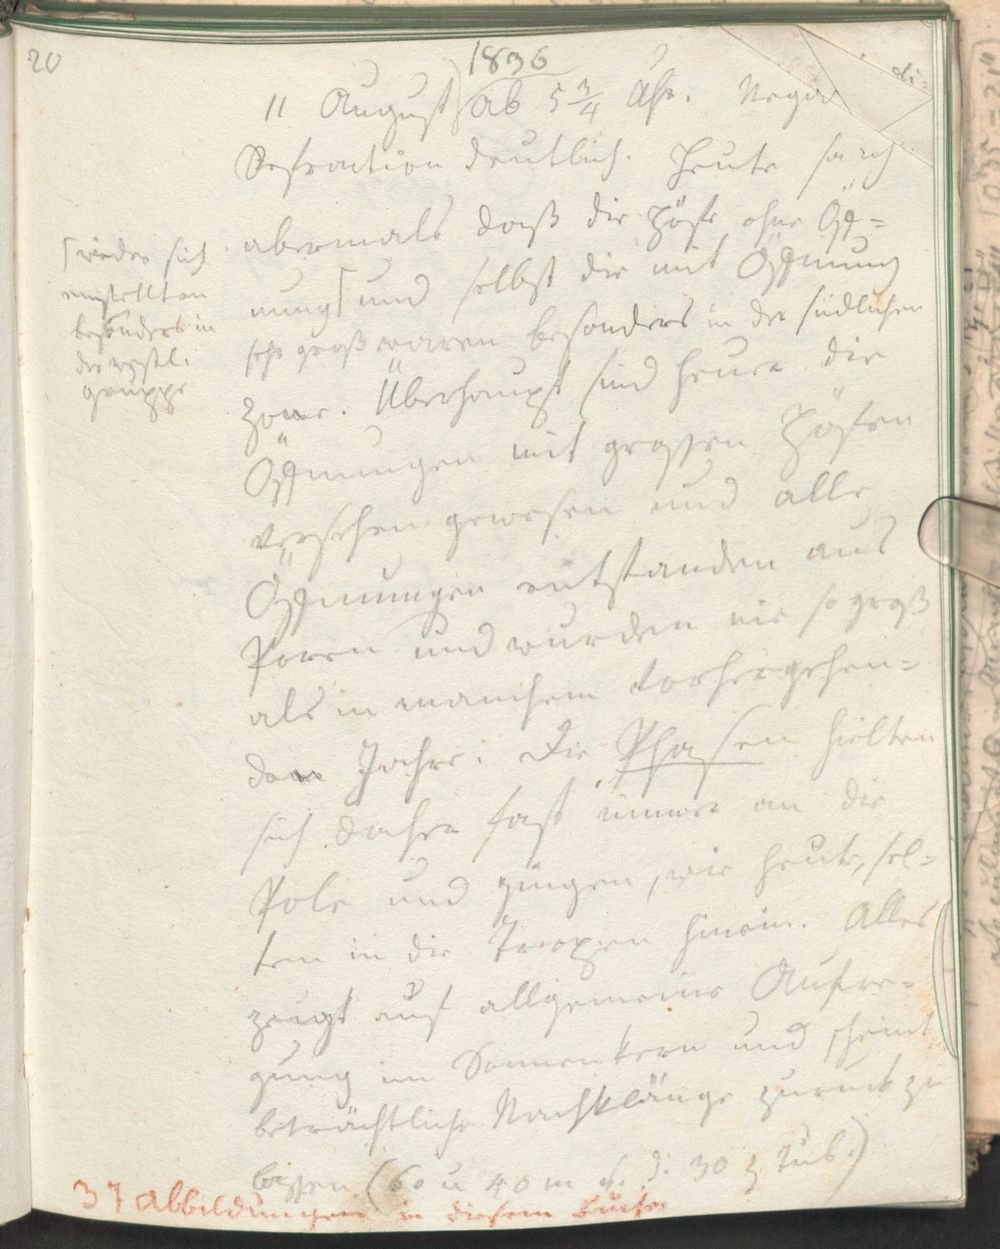 20
1836
11 August ab 5 3/4 Uhr. Nega
di-
Refraction deutlich. Heute sa ich
abermals daß die Höfe ohne Öff=
nung⌈ und selbst die mit Öffnung
sehr groß waren besonders in der südlichen
Zone. Überhaupt sind heuer die
Öffnungen mit grossen Höfen
versehen gewesen und alle
Öffnungen entstanden aus
Poren und wurden nie so groß
als in manchem vorhergehen=
den Jahre. Die Phasen hielten
sich daher fast immer an die
Pole und gingen, wie heute, sel=
ten in die Tropen hinein. Alles
zeigt auf allgemeine Aufre=
gung im Sonnenkern und scheint
beträchtliche Nachklänge zurück zu
lassen. (60 u 40 m 30 z Tub.)
⌈wieder sich
einstellten
besonders in
der westl.
gruppe
37 Abbildungen in diesem Buche